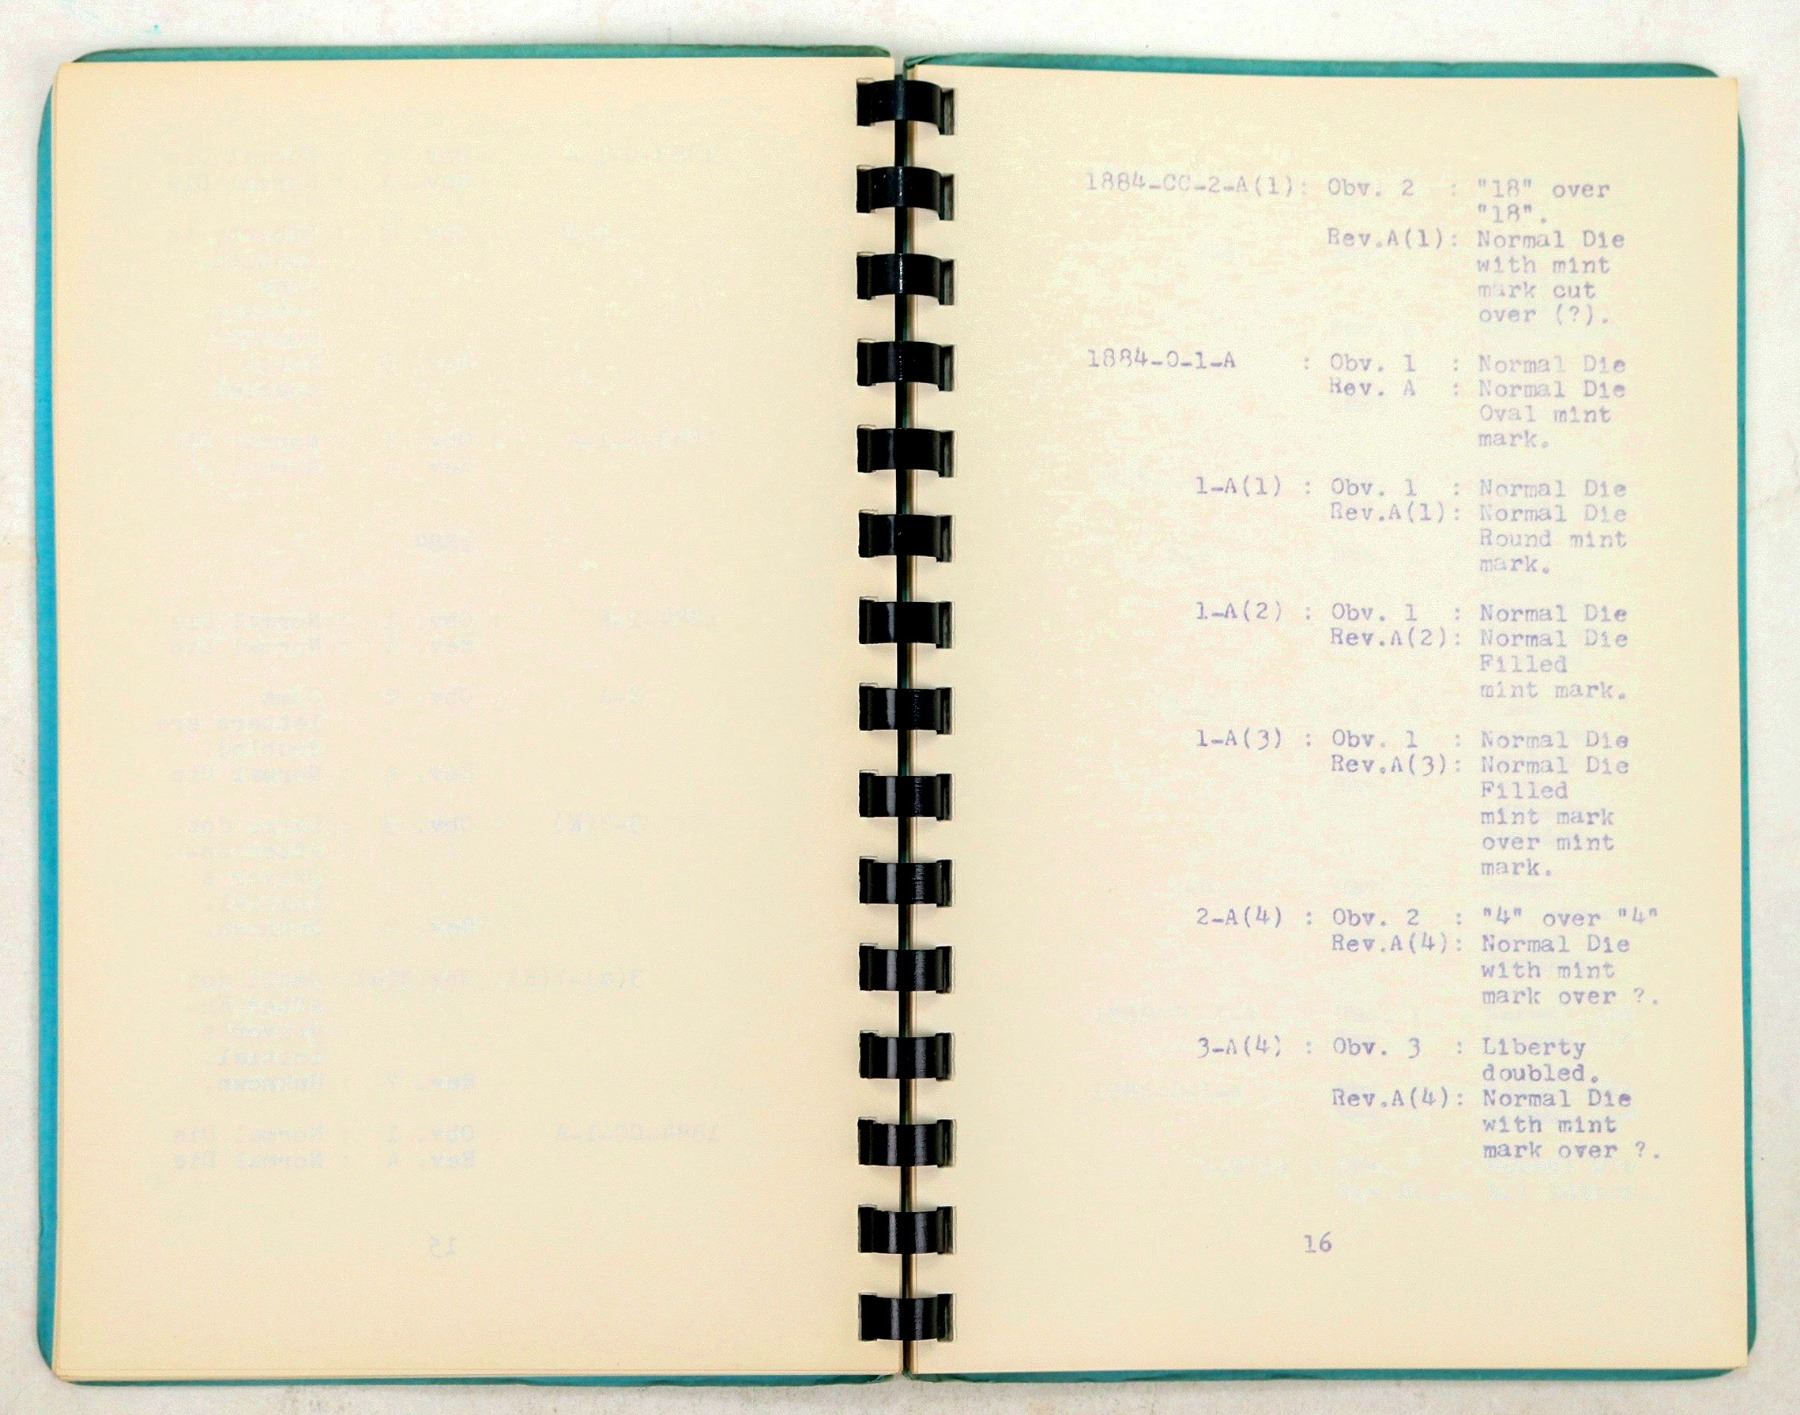 1884-CC-2-A(1): Obv. 2 : "18" over
"18".
Rev.A(1): Normal Die
with mint
mark cut
over (?).
1884-O-1-A : Obv. 1 : Normal Die
Rev. A : Normal Die
Oval mint
mark.
1-A(1) : Obv. 1 : Normal Die
Rev.A(1): Normal Die
Round mint
mark.
1-A(2) : Obv. 1 : Normal Die
Rev.A(2): Normal Die
Filled
mint mark.
1-A(3) : Obv. 1 : Normal Die
Rev.A(3): Normal Die
Filled
mint mark
over mint
mark.
2-A(4) : Obv. 2 : "4" over "4"
Rev.A(4): Normal Die
with mint
mark over ?.
3-A(4) : Obv. 3 : Liberty
doubled.
Rev.A(4): Normal Die
with mint
mark over ?.
16